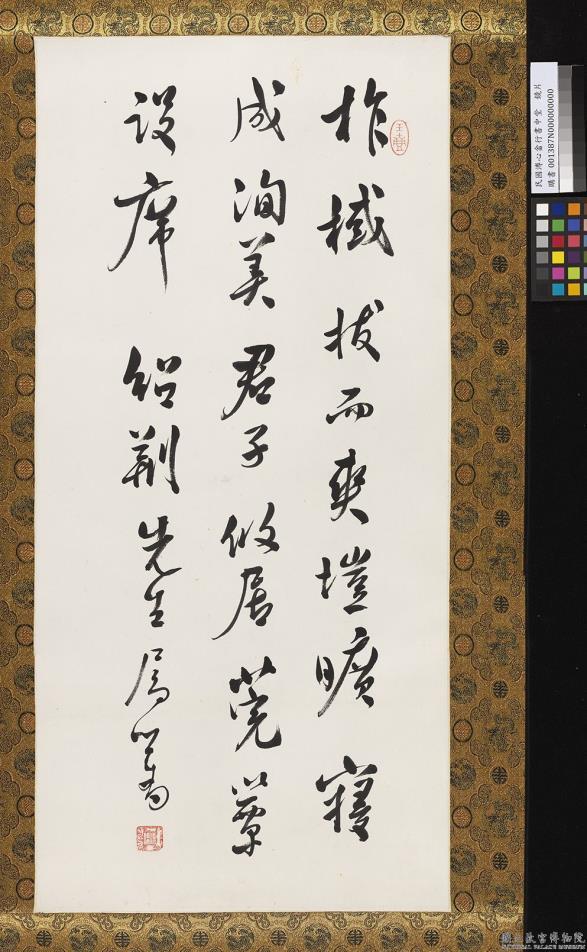 柞棫拔而爽塏曠寢
成洵美君子攸居莞簟
設席 紹荊先生屬 心畬
民國溥心畬行書中堂 鏡片
購書 001387N000000000
國立故宮博物院
NATIONAL PALACE MUSEUM